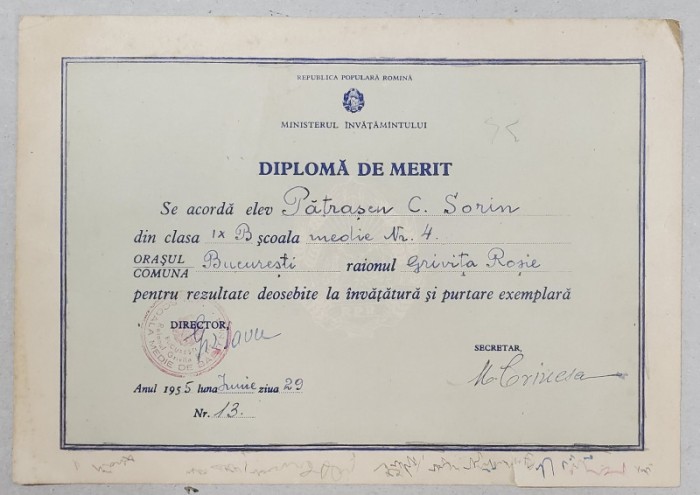 REPUBLICA POPULARĂ ROMÎNĂ
MINISTERUL ÎNVĂȚĂMÎNTULUI
DIPLOMĂ DE MERIT
Se acordă elev Pătrașcu C. Sorin
din clasa IX B școala medie Nr. 4.
ORAȘUL
COMUNA București raionul Grivița Roșie
pentru rezultate deosebite la învățătură și purtare exemplară
DIRECTOR,
SECRETAR,
Anul 1955 luna Iunie ziua 29
Nr. 13.